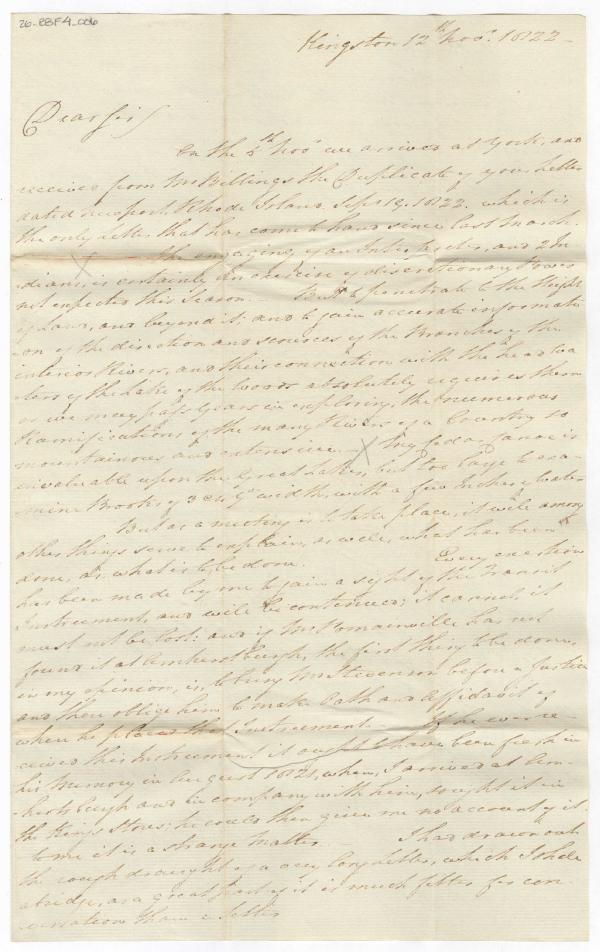 26-BBF4-006
Kingston 12th Nov.r 1822 –
Dear Sir/
On the 4th Nov.r we arrived at York, and
received from Mr Billings the Duplicate of your Letter
dated Newport, Rhode Island. Sept 19. 1822. which is
the only Letter that has come to hand since last March.
X – the engaging of an Interpreter, and 2 In
dians, is certainly an exercise of discretionary Power
not expected this Season – But to penetrate to the Height
of Land, and beyond it; and to gain accurate informati
-on of the direction and sources of the Branches of the
interior Rivers, and their connection with the head wa
ters of the Lake of the Woods absolutely requires them
or we may pass Years in exploring the numerous
Ramifications of the many Rivers of a Country so
mountainous and extensive – X My Cedar Canoe is
invaluable upon the Great Lakes, but too large to exa-
-mine Brooks of 3 @ 4 yds width, with a few Inches of water
But as a meeting is to take place, it will among
other things serve to explain, as well, what has been
done, as what is to be done. Every exertion
has been made by me to gain a sight of the Transit
Instrument, and will be continued; it cannot, it
must not be lost: and if Mr Romainville has not
found it at Amherstburgh, the first thing to be done,
in my opinion, is to bring Mr Stevenson before a Justice
and then oblige him to make Oath and Affidavit of
where he placed that Instrument – If he ever re-
ceived this Instrument it ought to have been fresh in
his Memory in August 1821, when, I arrived at Am-
herstburgh and in company with him, sought it in
the Kings Stores; he could then give me no account of it.
to me it is a strange matter. – I had drawn out
the rough draught of a very long Letter, which I shall
abridge, as a great part of it is much fitter for con-
versation than a Letter